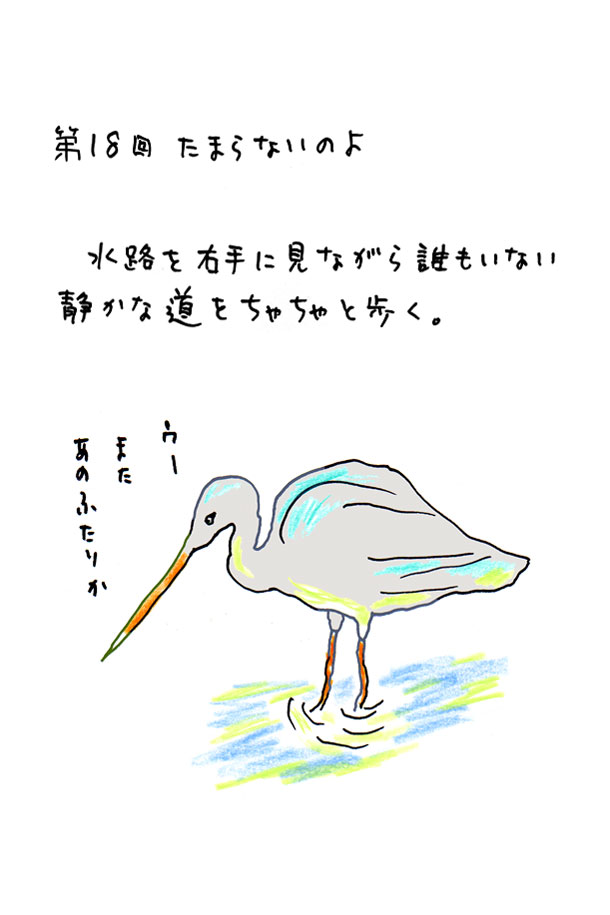 第18回 たまらないのよ
水路を右手に見ながら誰もいない
静かな道をちゃちゃと歩く。
ウー
また
あのふたりか